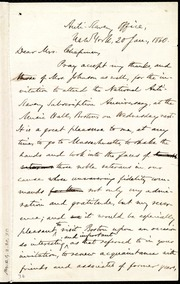 Anti-Slavery Office,
New York, 20 Jan., 1860.
Dear Mrs. Chapman,
Pray accept my thanks and
those of Mrs. Johnson as well, for the in-
vitation to attend the National Anti-
Slavery Subscription Anniversary, at the
Music Hall, Boston on Wednesday next.
It is a great pleasure to me, at any
time, to go to Massachusetts, to shake the
hands and look into the faces of
those noble veterans in our
cause whose unswerving fidelity com-
mands not only my admir-
ation and gratitude, but my rever-
ence; and it would be especially
pleasant to visit Boston upon an occasion
so interesting and important as that referred to in your
invitation, to renew acquaintance with
friends and associates of former years,